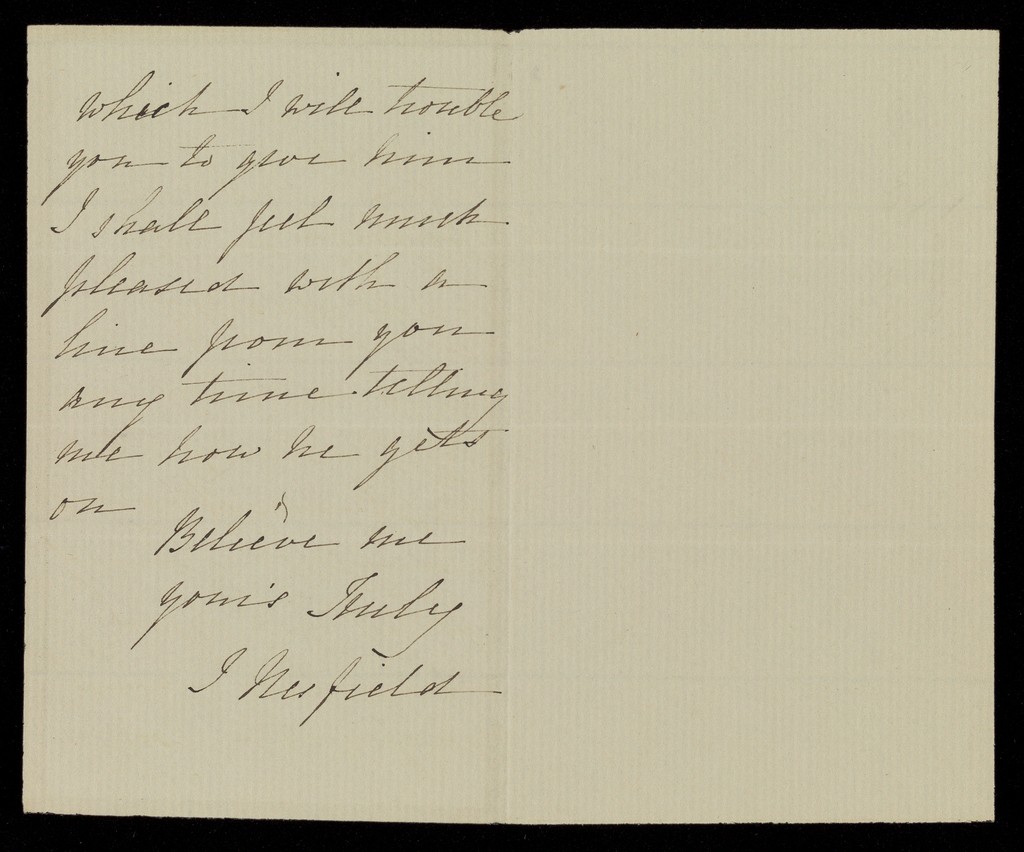 which I will trouble
you to give him
I shall feel much
pleased with a
line from you
any time telling
me how he gets
on
Believe me
your's Truly
I Nesfield